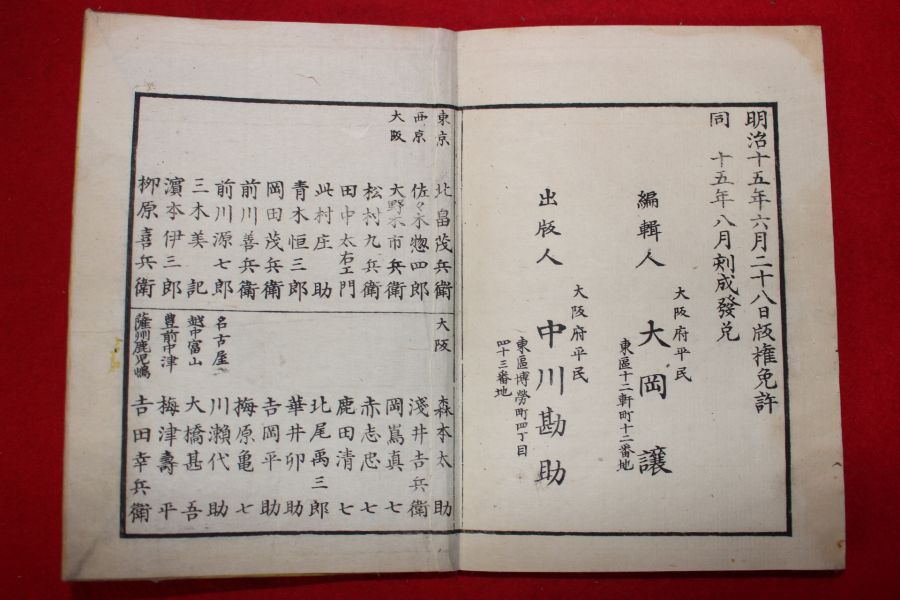 明治十五年六月二十八日版權免許
同 十五年八月刻成發兌
大阪府平民
編輯人 大岡讓
東區十二軒町十二番地
大阪府平民
出版人 中川勘助
東區博勞町四丁目
四十三番地
東京 北畠茂兵衛
西京 佐々木惣四郎
大阪 大野木市兵衛
松村九兵衛
田中太右エ門
此村庄助
青木恒三郎
岡田茂兵衛
前川善兵衛
前川源七郎
三木美記
濵本伊三郎
柳原喜兵衛
大阪 森本太助
淺井吉兵衛
岡嶌真七
赤志忠七
鹿田清七
北尾禹三郎
華井卯助
吉岡平助
梅原亀七
名古屋 川瀬代助
越中富山 大橋甚吾
豊前中津 梅津壽平
薩州鹿児嶋 吉田幸兵衛